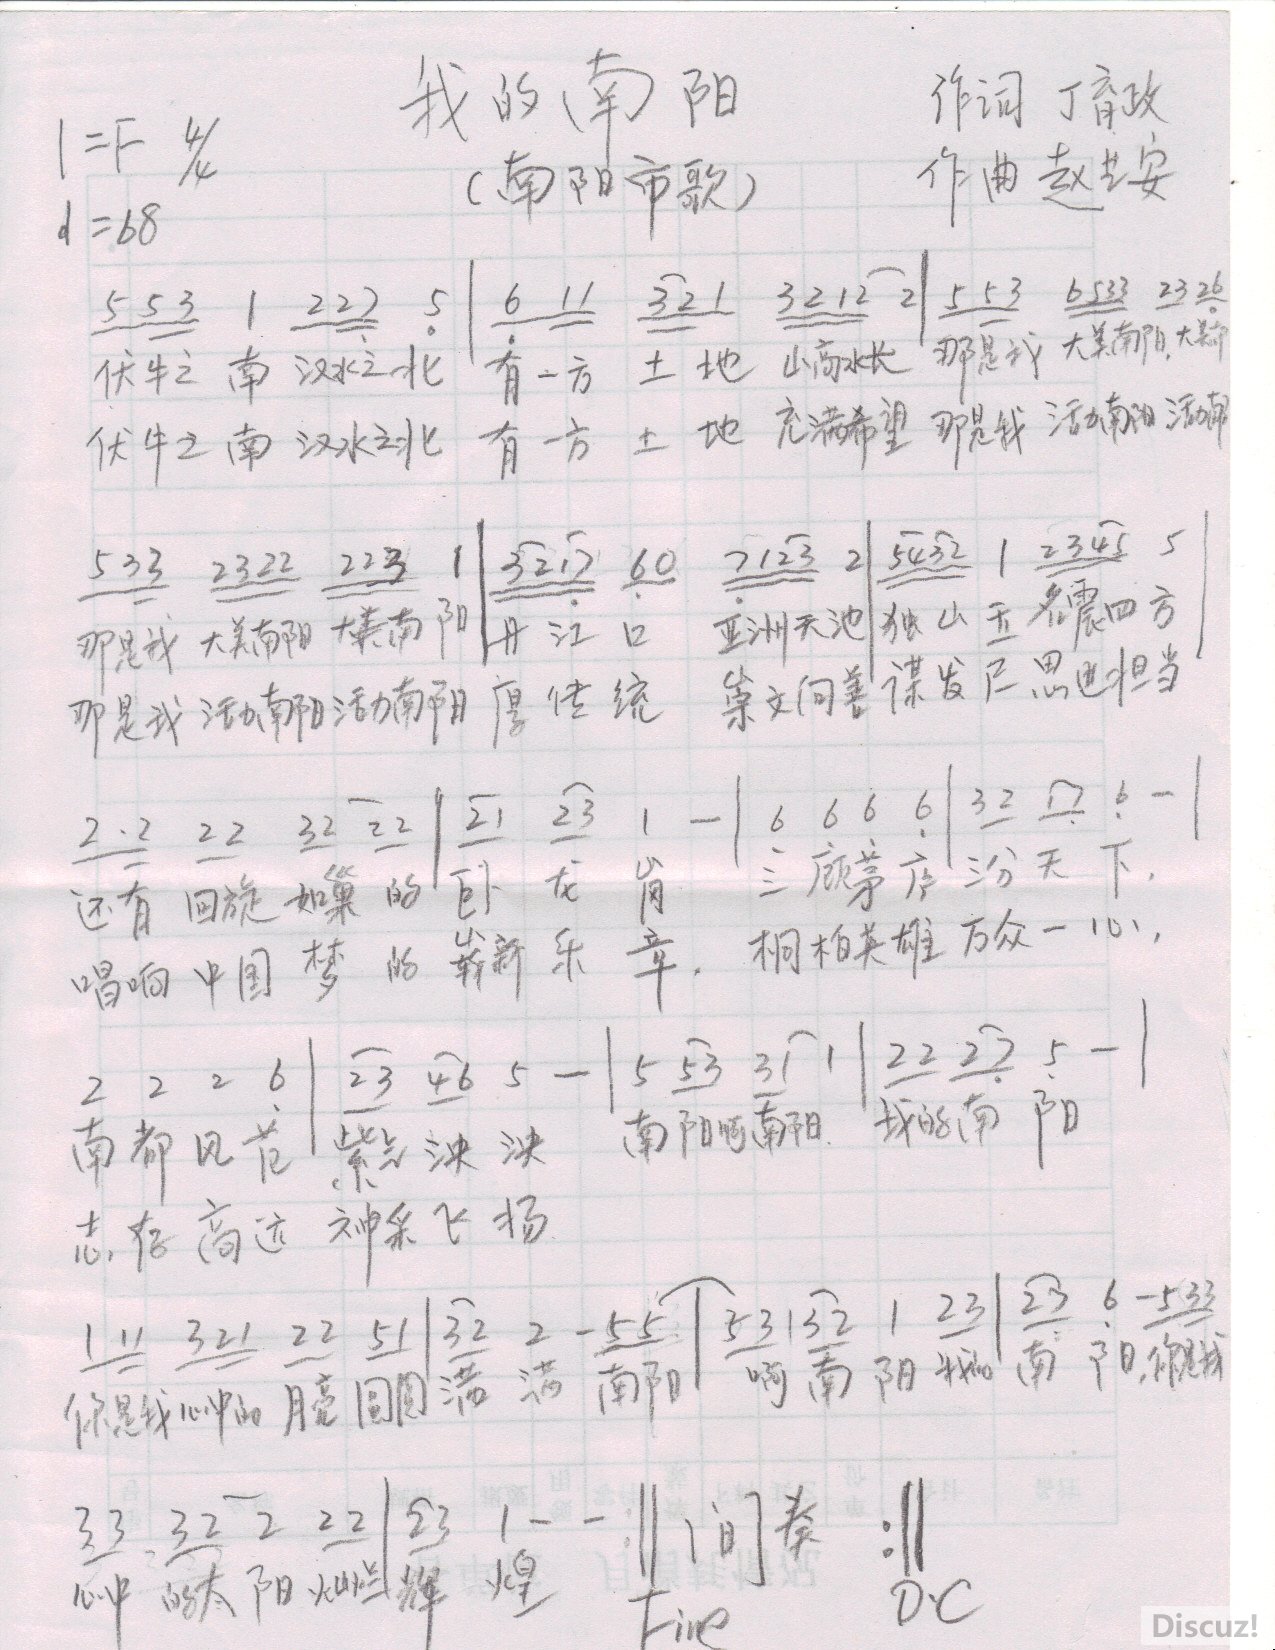 我的南阳
作词 丁育政
1=F 4/4
(南阳市歌)
作曲 赵世安
♩=68
5 5 3 1 2 2 7 5 | 6 1 1 3 2 1 3 2 1 2 2 | 5 5 3 6 5 3 3 2 3 2 6
伏牛之 南 汉水之北 有一方 土 地 山高水长 那是我 大美南阳,大美南
伏牛之 南 汉水之北 有一方 土 地 充满希望 那是我 活力南阳 活力南
5 3 3 2 3 2 2 2 2 3 1 | 3 2 1 7 6 0 7 1 2 3 2 | 5 4 3 2 1 2 3 4 5 5 |
那是我 大美南阳 大美南 阳 丹江口 亚洲天池 独山玉 名震四方
那是我 活力南阳 活力南阳 厚传统 崇文向善 谋发展 思进担当
2 · 2 2 2 3 2 2 2 | 2 1 2 3 1 — | 6 6 6 6 | 3 2 1 7 6 — |
还有 回旋 如巢 的 卧 龙 岗 三顾茅庐 三分天下,
唱响 中国 梦 的 崭新 乐 章. 桐柏英雄 万众一心,
2 2 2 6 | 2 3 4 6 5 — | 5 5 3 3 1 1 | 2 2 2 7 5 — |
南都风范 紫气泱泱 南阳啊南阳. 我的南 阳
志存高远 神采飞扬
1 1 1 3 2 1 2 2 5 1 | 3 2 2 - 5 5 | 5 3 1 3 2 1 2 3 | 2 3 6 - 5 3 3
你是我心中的 月亮 圆圆 满 满 南阳 啊 南 阳 我的 南 阳,你是我
3 3 3 2 2 2 2 | 2 3 1 - - :‖ 间奏 :‖
心中 的太 阳 灿烂 辉 煌 Fine D.C
Discuz!